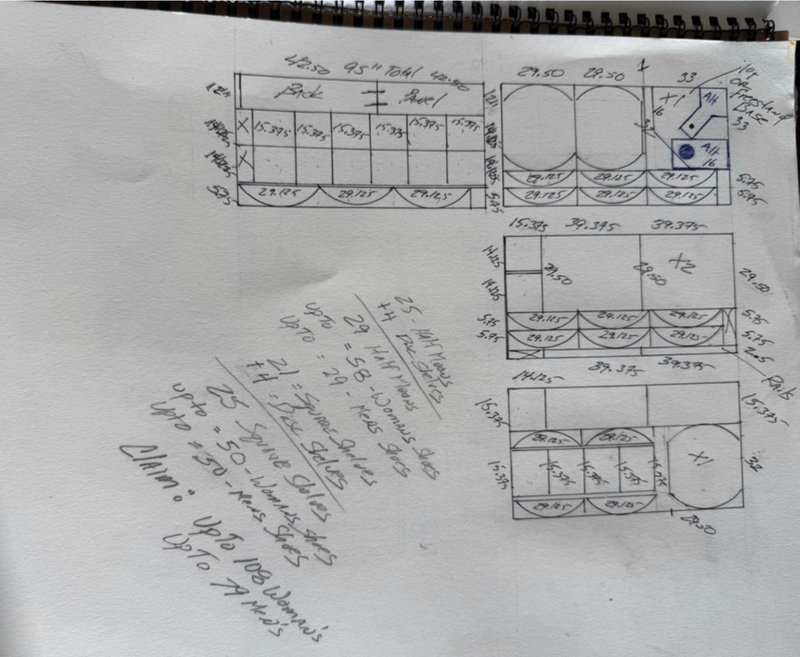 42.50 95" Total 42.50
12H
Back Panel
12H
X 15.375 15.375 15.375 15.375 15.375 15.375
14.125
X
14.125
5.75 29.125 29.125 29.125 5.75
29.50 29.50 33
X1
16
A/H
33
Base
A/H
16
29.125 29.125 29.125 5.75
29.125 29.125 29.125 5.75
15.375 39.375 39.375
14.125
14.125
29.50 29.50 X2 29.50
5.75 29.125 29.125 29.125 5.75
5.75 29.125 29.125 29.125 5.75
2.5
39.375 39.375 Rails
14.125
15.375 15.375
29.125 29.125
15.375 15.375 15.375 15.375 15.375 X1 32
29.125 29.125
29.50
25 - Half Moons
+4 Disc Shelves
29 Half Moons
upto = 58 - Womans Shoes
upto = 29 - Mens Shoes
21 = Square Shelves
+4 = Disc Shelves
25 Square Shelves
upto = 50 - Womans Shoes
upto = 50 - Mens Shoes
Claim: Upto 108 Womans's
UpTo 79 Men's